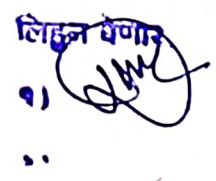 लिहून घेणार
१)